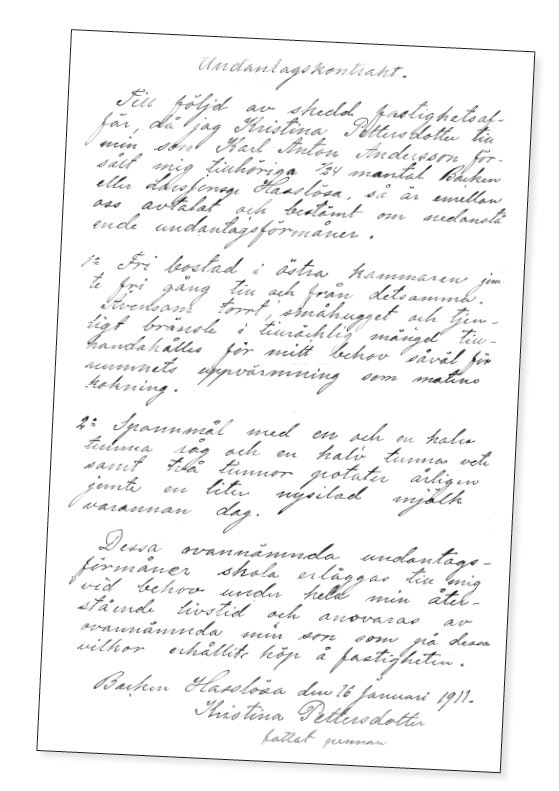 Undantagskontrakt.
Till följd av skedd fastighetsaf-
fär, då jag Kristina Pettersdotter till
min son Karl Anton Andersson för-
sålt mig tillhöriga /24 mantal Backen
eller Hasslösa, så är emellan
oss avtalat och bestämt om nedanstå
ende undantagsförmåner.
1º Fri bostad i östra kammaren jem
te fri gång till och från detsamma.
Ävensom torrt, småhugget och tjen-
ligt bränsle i tillräcklig mängd till-
handahålles för mitt behov såväl för
rummets uppvärmning som matens
kokning.
2º Spannmål med en och en halv
tunna råg och en halv tunna vete
samt två tunnor potater årligen
jemte en liter nysilad mjölk
varannan dag.
Dessa ovannämnda undantags-
förmåner skola erläggas till mig
vid behov under hela min åter-
stående livstid och ansvaras av
ovannämnda min son som på dessa
villkor erhållit köp å fastigheten.
Backen Hasslösa den 26 Januari 1911.
Kristina Pettersdotter
fattat pennan